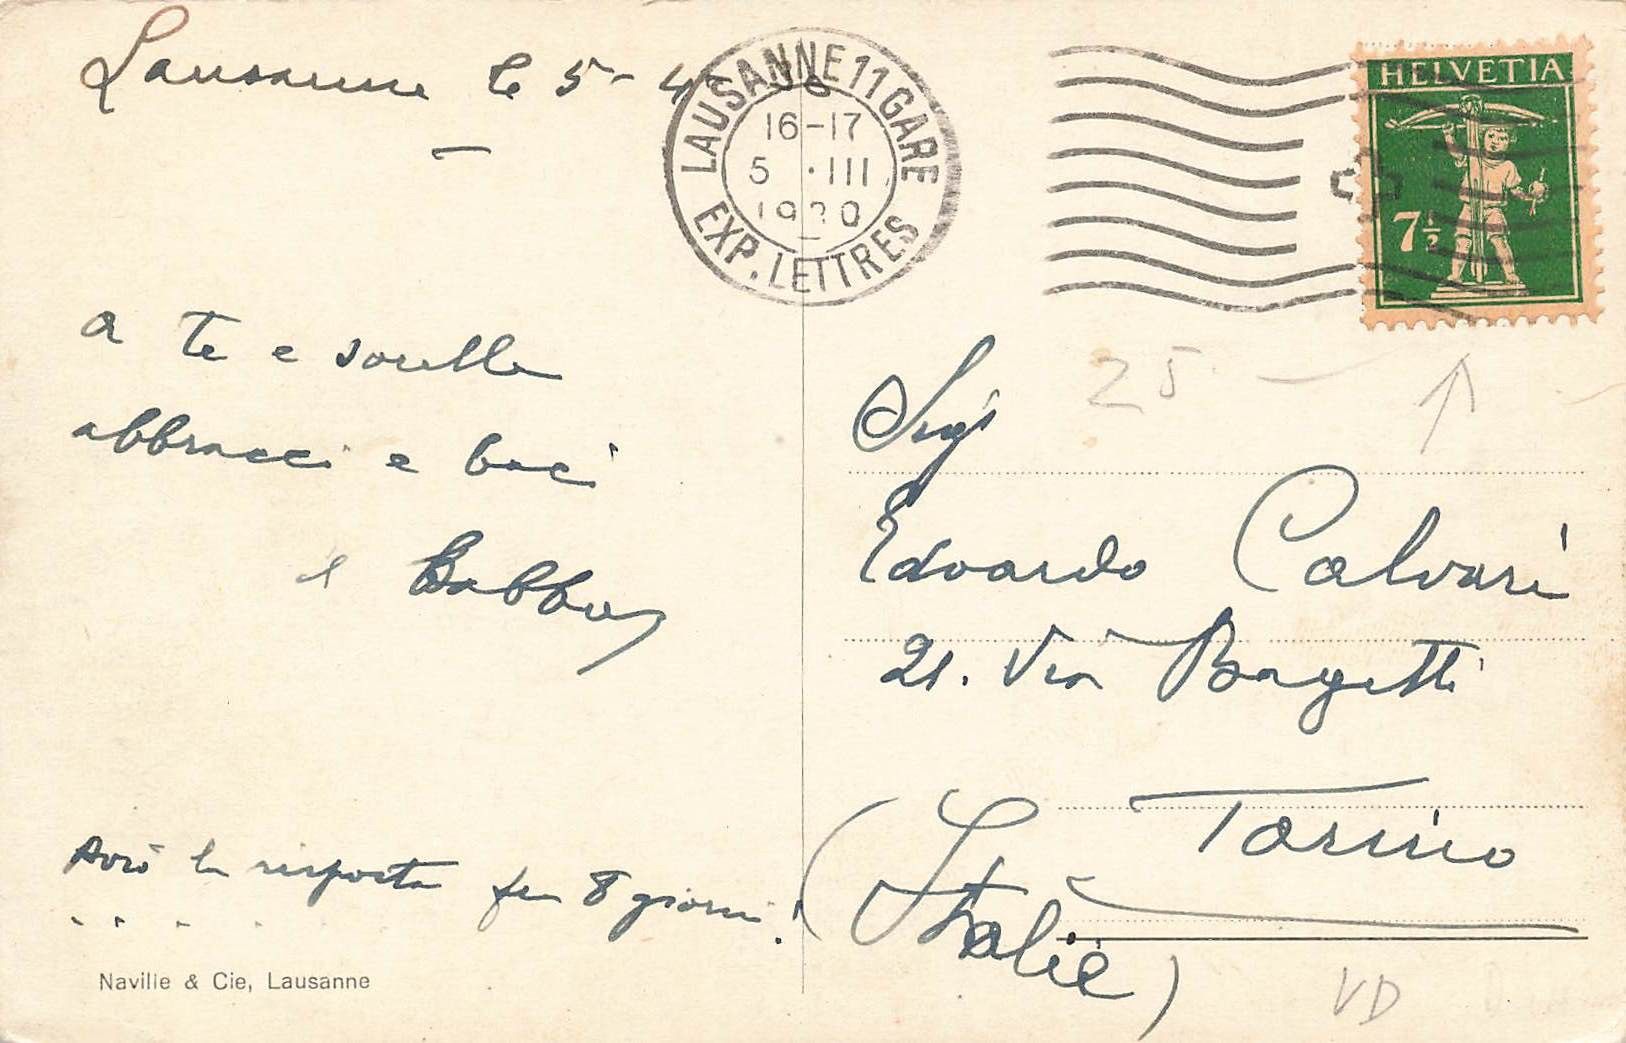 Lausanne le 5-4
LAUSANNE 11 GARE
16-17
5 ·III
1920
EXP. LETTRES
HELVETIA
7½
a te e sorella
abbracci e baci
il Babbo
Avrò la risposta fra 8 giorni!
Naville & Cie, Lausanne
25.-
Sigr
Edoardo Calvari
21. Via Bagetti
Torino
(Italie)
VD